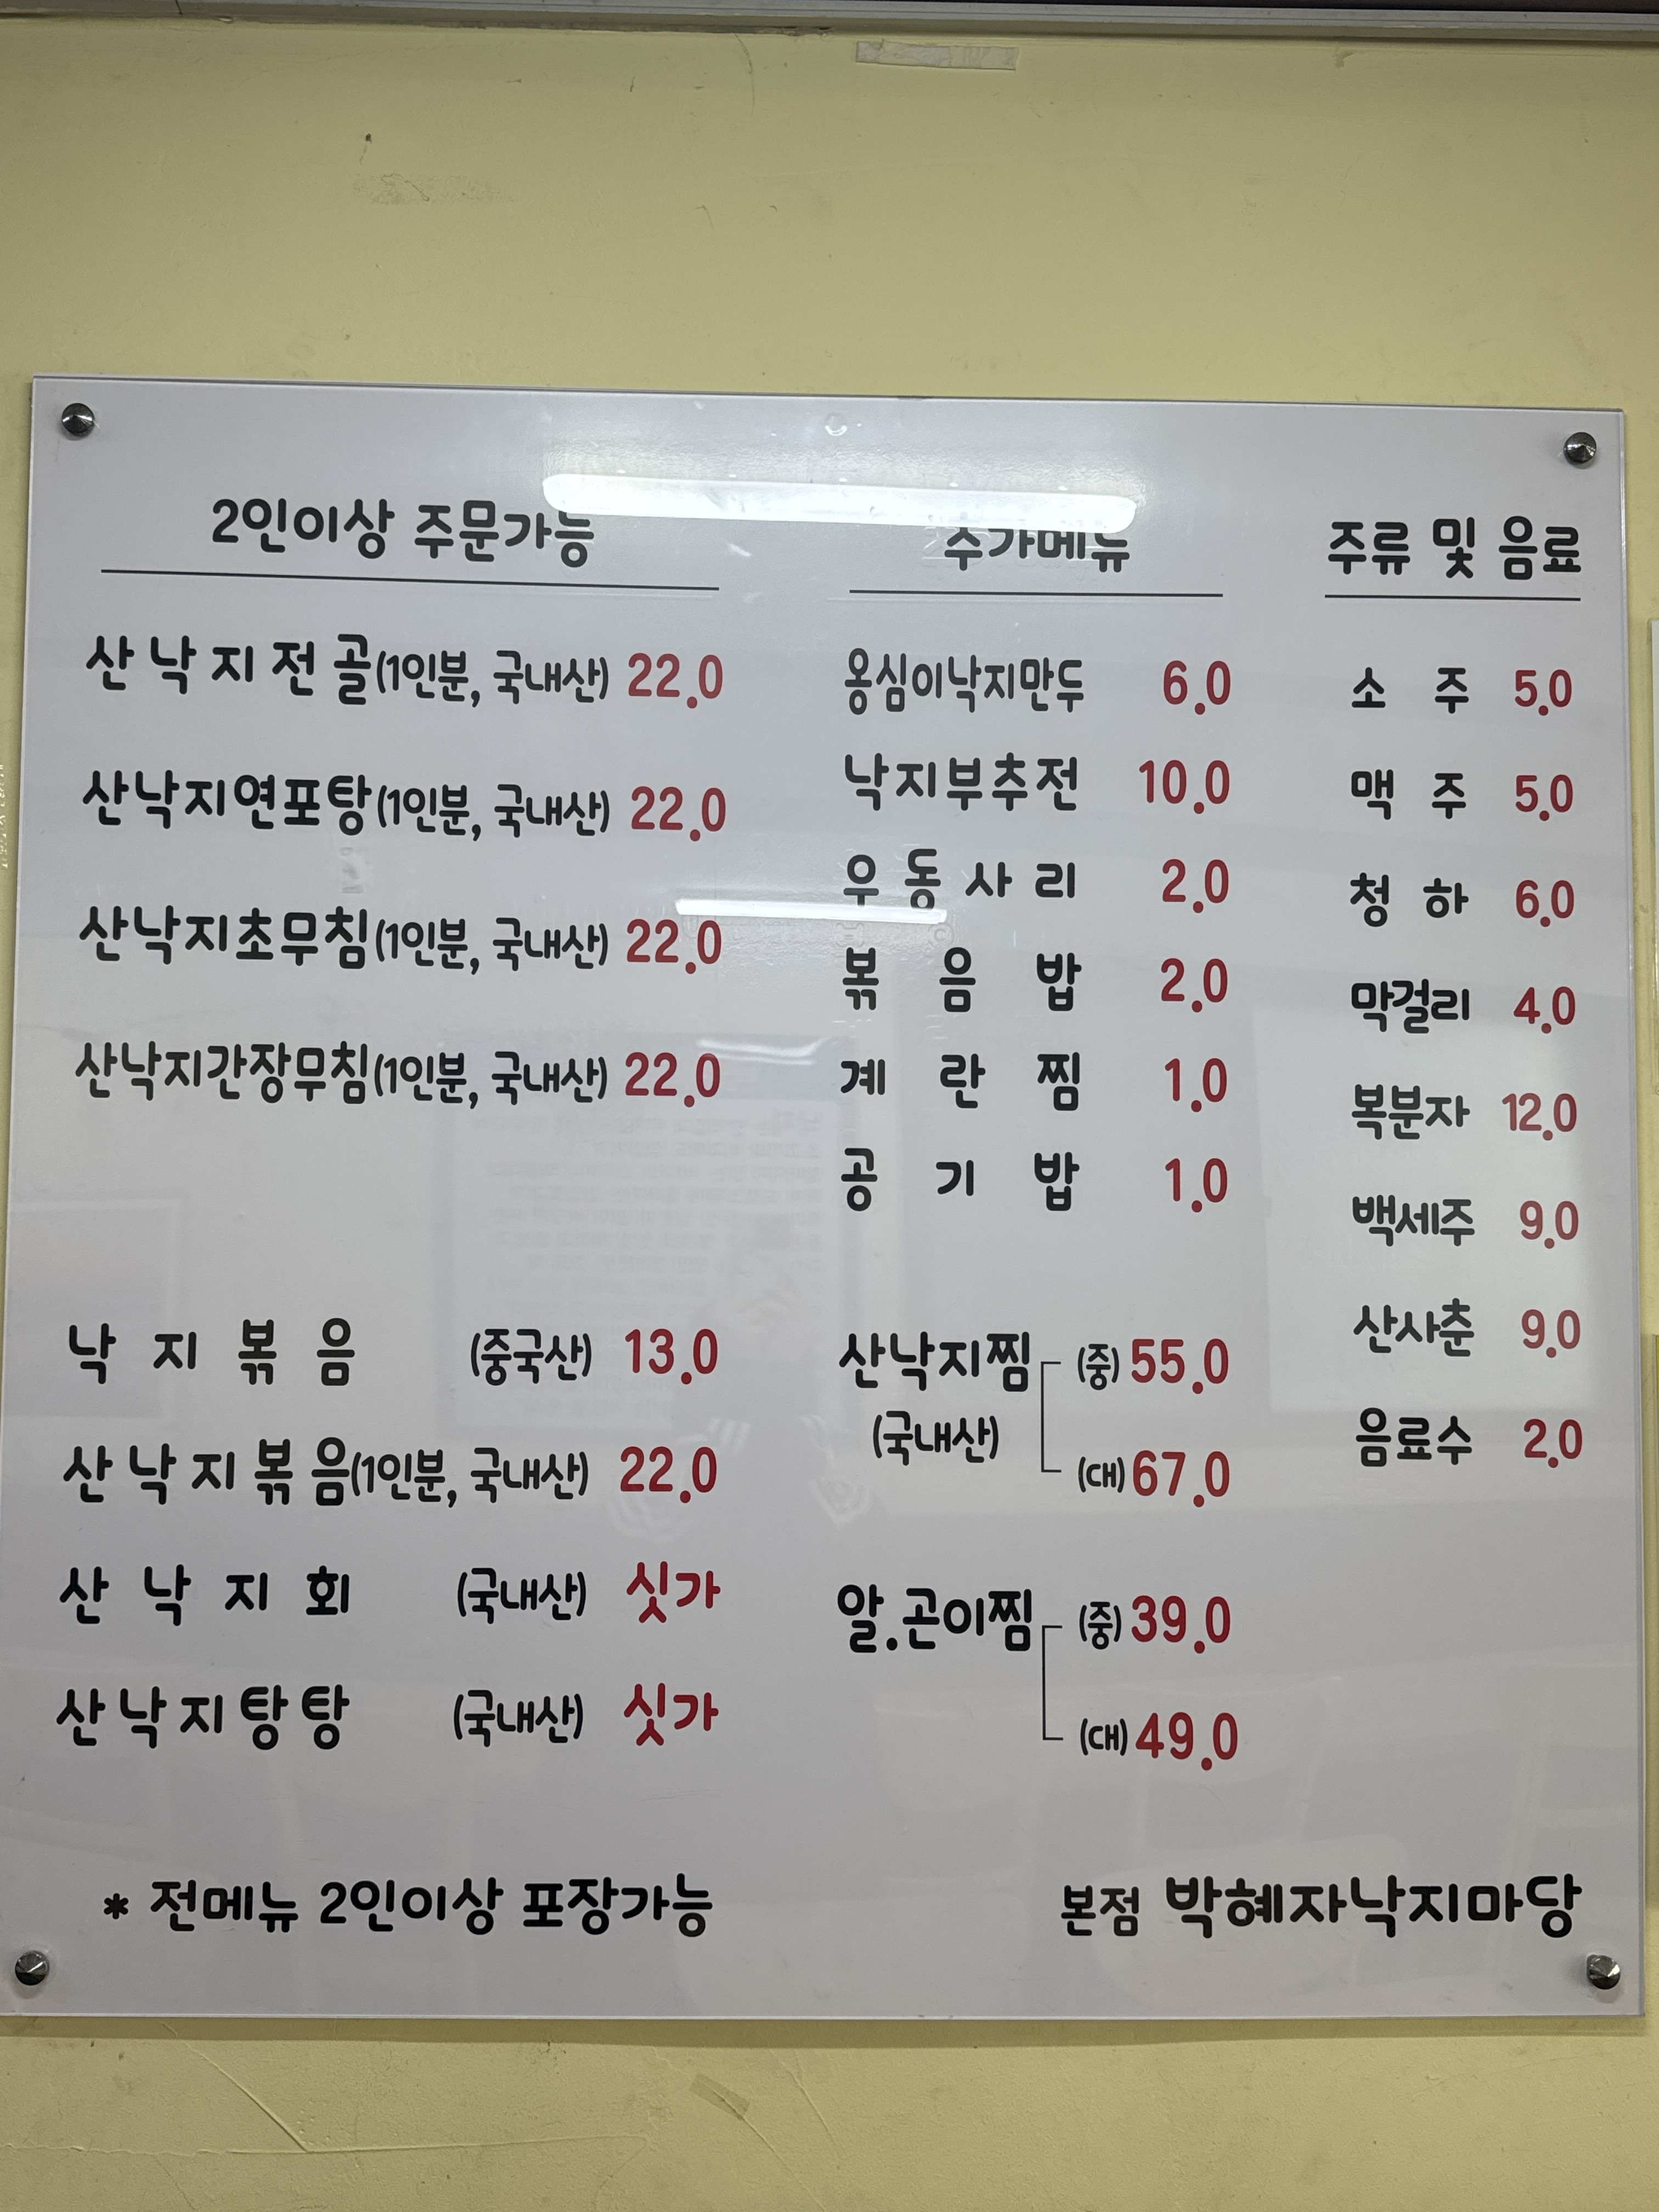 2인이상 주문가능
산낙지전골(1인분, 국내산) 22.0
산낙지연포탕(1인분, 국내산) 22.0
산낙지초무침(1인분, 국내산) 22.0
산낙지간장무침(1인분, 국내산) 22.0
낙지볶음 (중국산) 13.0
산낙지볶음(1인분, 국내산) 22.0
산낙지회 (국내산) 싯가
산낙지탕탕 (국내산) 싯가
* 전메뉴 2인이상 포장가능
추가메뉴
옹심이낙지만두 6.0
낙지부추전 10.0
우동사리 2.0
볶음밥 2.0
계란찜 1.0
공기밥 1.0
산낙지찜 (중) 55.0
(국내산)
(대) 67.0
알.곤이찜 (중) 39.0
(대) 49.0
주류 및 음료
소주 5.0
맥주 5.0
청하 6.0
막걸리 4.0
복분자 12.0
백세주 9.0
산사춘 9.0
음료수 2.0
본점 박혜자낙지마당